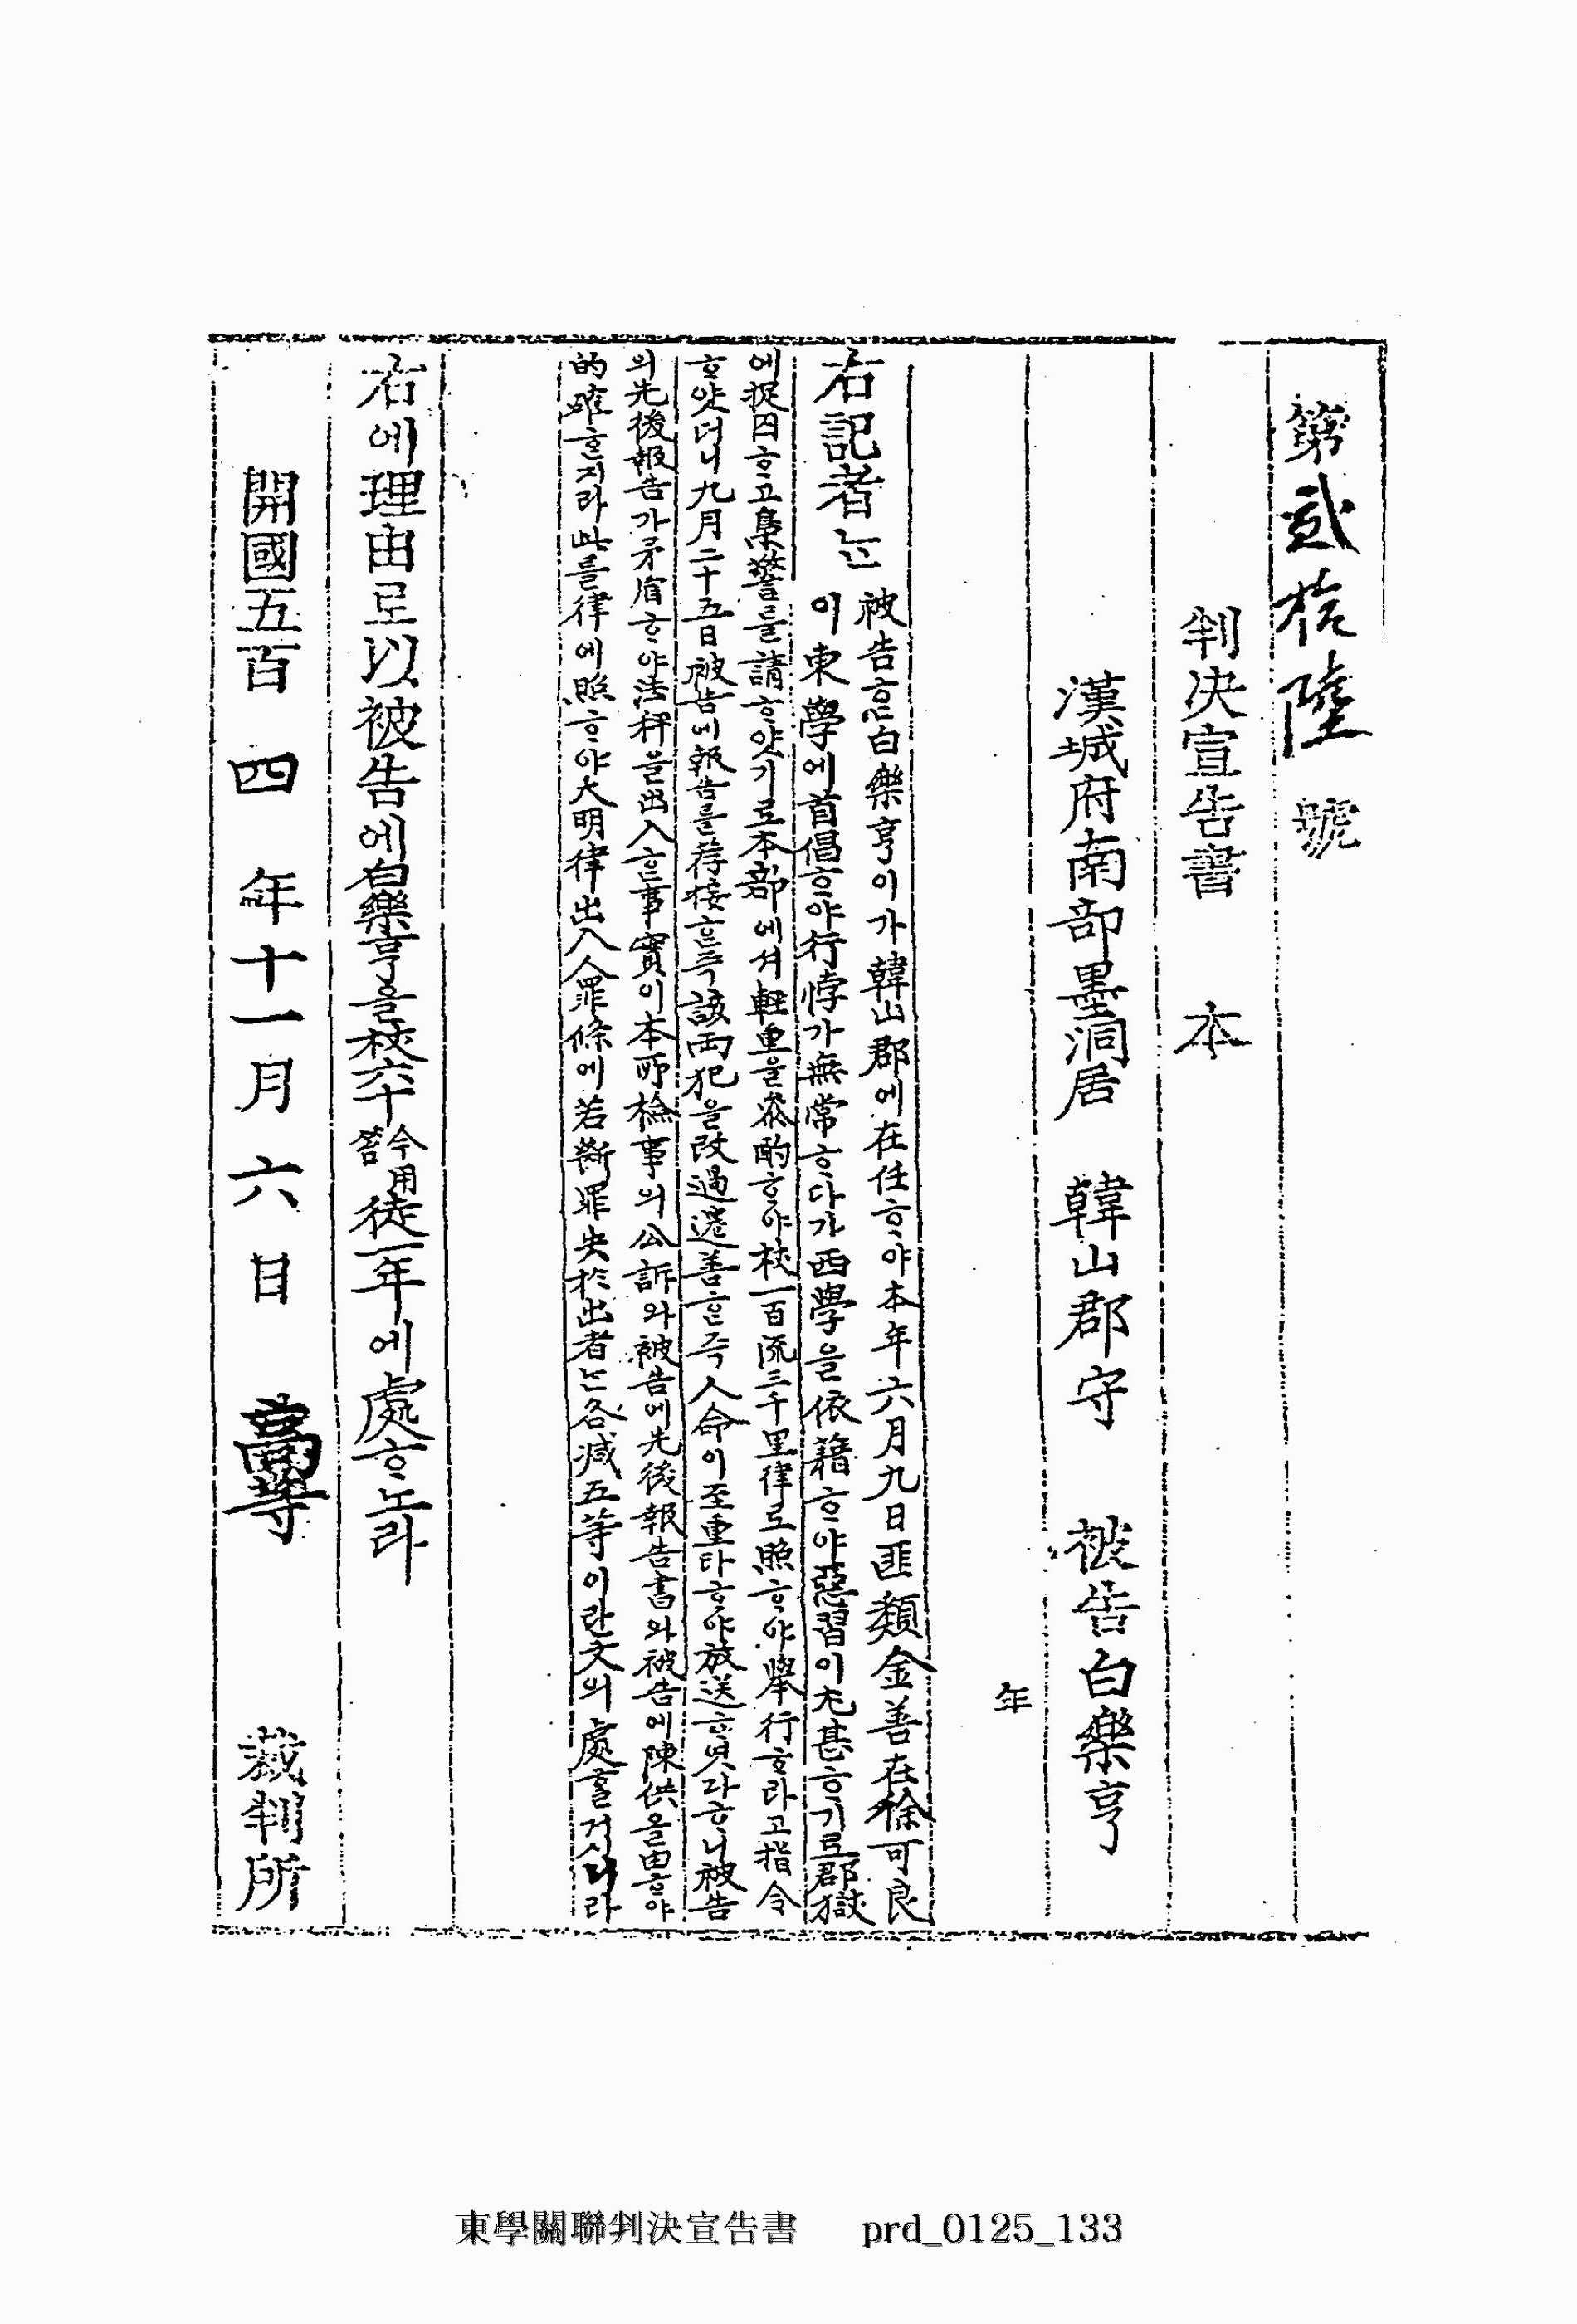 第貳拾陸號
判决宣告書 本
漢城府南部墨洞居 韓山郡守 被告白樂亨
年
右記者ᄂᆞᆫ 被告ᄒᆞᆫ白樂亨이가韓山郡에在任ᄒᆞ야本年六月九日匪類金善在徐可良
이東學에首倡ᄒᆞ야行悖가無常ᄒᆞ다가西學을依藉ᄒᆞ야惡習이尤甚ᄒᆞ기로郡獄
에捉囚ᄒᆞ고梟警를請ᄒᆞ얏기로本部에셔輕重을叅酌ᄒᆞ야杖一百流三千里律로照ᄒᆞ야擧行ᄒᆞ라고指令
ᄒᆞ얏더니九月二十五日被告에報告를荐接ᄒᆞᆫ즉該両犯을改過遷善ᄒᆞᆫ즉人命이至重타ᄒᆞ야放送ᄒᆞ엿다ᄒᆞ니被告
의先後報告가矛盾ᄒᆞ야法秤을出入ᄒᆞᆫ事實이本所檢事의公訴와被告에先後報告書와被告에陳供을由ᄒᆞ야
的確ᄒᆞᆫ지라此를律에照ᄒᆞ야大明律出入人罪條에若斷罪失於出者ᄂᆞᆫ各減五等이란文의處ᄒᆞᆯ거시니라
右에理由로以被告에白樂亨을杖六十今用笞徒一年에處ᄒᆞ노라
開國五百四年十一月六日 高等 裁判所
東學關聯判決宣告書 prd_0125_133